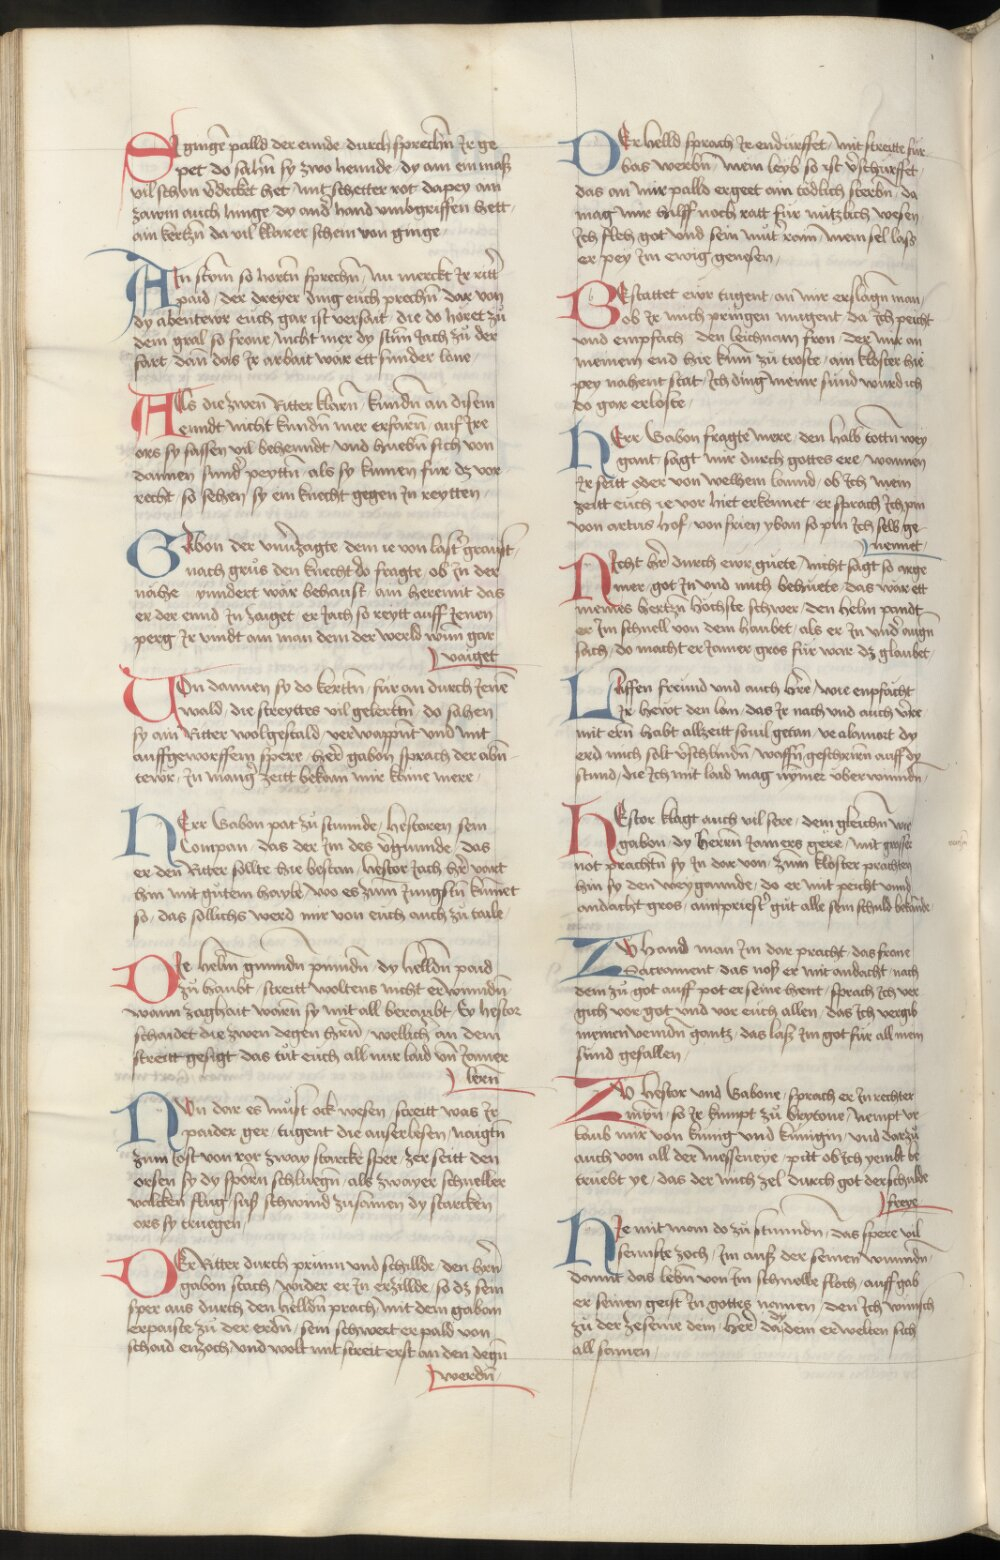 SI gingen palld der ennde / durch sprechn̄ Ir ge
pet do sahn̄ sy zwo hennde / dy ain ein maß
vil schon v̄decket het / mit schetter rot dapey ain
zawm auch hinge / dy and̄ hand vmbgriffen hett /
ain kertzn̄ da vil klarer schein von ginge
AIn stym̄ so hortn̄ sprechn̄ / nu merckt Ir ritt̄
paid / der dreyer ding euch prechn̄ / dar von
dy abentewr euch gar ist versait / die do horet zů
dem gral so frone / nicht mer dy stim̄ Iach zů der
fart / dan̄ das Ir arbait wär ett sunder lone /
ALs die zwen Ritter klarn̄ / kundn̄ an disem
enndt nicht kundn̄ mer erfarn̄ / auf Ire
ors sy sassen vil behenndt / vnd huebn̄ sich von
dannen sund̄ peyttn̄ / als sy kumen für dz vor
recht / so sehen sy ein knecht gegen In reytten /
GAbon der vnv̄zagte / dem ie von last̄ graust /
nach grůs den knecht do fragte / ob In der
nähe yundert wär behaust / ain heremit das
er der ennd In zaiget / er Iach so reytt auff Ienen
perg / Ir vindt ain man dem der werld wun̄ gar
vaiget
VOn dannen sy do kertn̄ / für an durch Ienē
wald / die streyttes vil gelertn̄ / do sahen
sy ain Ritter wolgestald / verwappnt vnd mit
auffgeworffem spere / her̄ gabon sprach der abn̄
tewr / In mang zeitt bekam mir kaine mere /
HErr Gabon pat zů stunnde / hestoren sein
Compan / das der Im des v̄gunnde / das
er den Ritter sollte hie bestan / hestor Iach her̄ vart
hin mit gůtem hayle / wo es zum Iungstn̄ kumet
so / das sollichs werd mir von euch auch zů taile /
DIe helm̄ gunndn̄ pinndn̄ / dy helldn̄ paid
zů haubt / streitt woltens nicht erwinndn̄
wann zaghait warn̄ sy mit all beraubt / Ey hestor
schaidet die zwen degen hern̄ / wellich an dem
streitt gesigt das tůt euch all nur laid vn̄ Iamer
lern̄
NVn dar es můst ock wesen / streitt was Ir
paider ger / tugent die auserlesen / naigtn̄
zum Iost von ror zwar starcke sper / zer seitt den
orsen sy dy sporn̄ schluegn̄ / als zwayer schneller
valcken flug / suß schwind zusamen dy starcken
ors sy truegen /
DEr Ritter durch prünn vnd schillde / den hern̄
gabon stach / wider er In erzillde / so dz sein
sper aus durch den helldn̄ prach / mit dem gabon
erpaiste zů der erdn̄ / sein schwert er pald von
schaid enzoch / vnd wolt mit streit erst an den degn̄
werdn̄ /
DEr helld sprach Ir endürffet / mit streitte für
bas werbn̄ / mein leyb so ist v̄schürffet /
das an mir palld ergeet ain tödlich sterbn̄ / da
mag mir hilff noch ratt für nützlich wesen /
Ich fleh got vnd sein můt̄ rain / mein sel lass
er pey Im ewig genesen /
GEstattet ewr tugent / an mir erslagn̄ man /
ob Ir mich pringen mügent / da Ich peicht
vnd empfach den leichnam fron / der mir an
meinem end hie kum̄ zu troste / ain kloster hie
pey nahent stat / Ich ding meinr sünd wurd ich
do gar erloste /
HErr Gabon fragte mere / den halb tottn̄ wey
gant / sagt mir durch gottes ere / wannen
Ir seitt oder von welhem lannd / ob Ich mein
zeitt euch ie vor hiet erkennet / er sprach Ich pin
von artus hof / von frien yban so pin Ich selb ge
nennet /
NIcht her̄ durch ewr güete / nicht sagt so arge
mer / got In vnd mich behüete / das wär ett
meines hertzn̄ höchste schwer / den helm pandt
er Im schnell von dem haubet / als er In vnd̄ augn̄
sach / do macht er Iamer gros für war dz glaubet /
LAffen freund vnd auch her̄e / wie enpfächt
Ir hewt den lon / das Ir nach vnd auch v̄re
mit ern̄ habt allzeitt souil getan / ve alamort dy
erd mich solt v̄schlindn̄ / waffn̄ geschrirn̄ auff dy
stund / die Ich mit laid mag nym̄er überwinndn̄ /
HEstor klagt auch vil sere / dem gleichn̄ wie
gabon / dy herrn̄ Iamers gere / mit grosser
not prachtn̄ sy In dar von / zum kloster prachten
hin sy den weygannde / do er mit peicht vnnd
andacht gros / aim priest̄ gůt alle sein schuld bekande
ZV hand man Im dar pracht / das frone
Sacrament das nos er mit andacht / nach
dem zů got auff pot er seine hent / sprach Ich ver
gich vor got vnd vor euch allen / das Ich vergib
meinen veindn̄ gantz / das laß Im got für all mein
sünd gefallen /
ZV hestor vnd Gabone / sprach er In rechter
myn̄ / so Ir kumpt zů brytone / nempt vr
laub mir von künig vnd künigin / vnd darzů
auch von all der messeneye / pitt ob Ich yembt be
truebt ye / das der mich zel durch got der schulde
freye
HIe mit man do zů stunndn̄ / das spere vil
senniste zoch / Im auß der seinen wunndn̄ /
damit das lebn̄ von Im schnelle floch / auff gab
er seinen geist In gottes nomen / den Ich wunsch
zů der zeseme dem her̄ / da dy dem erwelten sich
all samen /